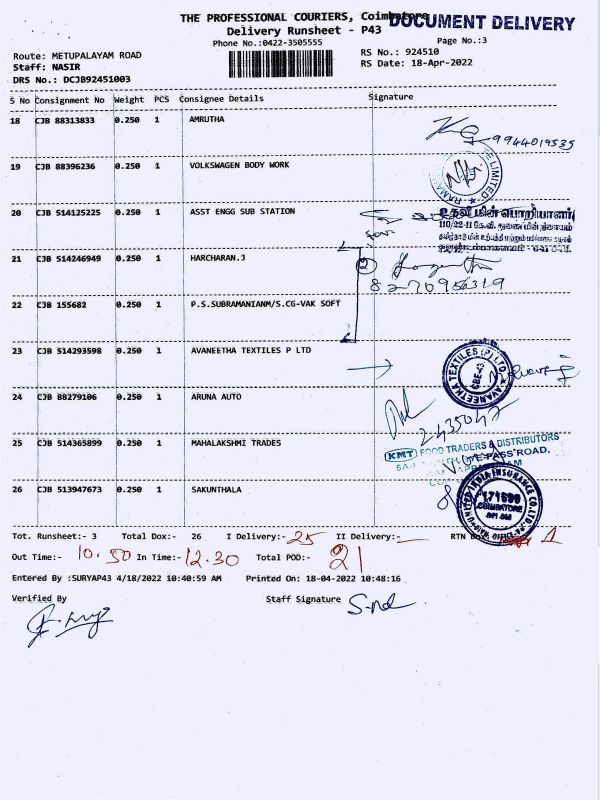 THE PROFESSIONAL COURIERS, Coimbatore
DOCUMENT DELIVERY
Delivery Runsheet - P43
Phone No.:0422-3505555
Page No.:3
Route: METUPALAYAM ROAD
RS No.: 924510
Staff: NASIR
RS Date: 18-Apr-2022
DRS No.: DCJB92451003
S No Consignment No Weight PCS Consignee Details Signature
18 CJB 88313833 0.250 1 AMRUTHA
9944019535
19 CJB 88396236 0.250 1 VOLKSWAGEN BODY WORK
20 CJB 514125225 0.250 1 ASST ENGG SUB STATION
உதவி மின் பொறியாளர்
110/22-11 கே.வி. துணை மின் நிலையம்
21 CJB 514246949 0.250 1 HARCHARAN.J
8270956319
22 CJB 155682 0.250 1 P.S.SUBRAMANIANM/S.CG-VAK SOFT
23 CJB 514293598 0.250 1 AVANEETHA TEXTILES P LTD
AVANEETHA TEXTILES (P) LTD.
CBE-43
24 CJB 88279106 0.250 1 ARUNA AUTO
2435047
25 CJB 514365899 0.250 1 MAHALAKSHMI TRADES
KMT FOOD TRADERS & DISTRIBUTORS
PASS ROAD,
26 CJB 513947673 0.250 1 SAKUNTHALA
UNITED INDIA INSURANCE CO. LTD.
171600
COIMBATORE
Tot. Runsheet:- 3 Total Dox:- 26 I Delivery:- 25 II Delivery:- RTN 1
Out Time:- 10.50 In Time:- 12.30 Total POD:- 21
Entered By :SURYAP43 4/18/2022 10:40:59 AM Printed On: 18-04-2022 10:48:16
Verified By Staff Signature